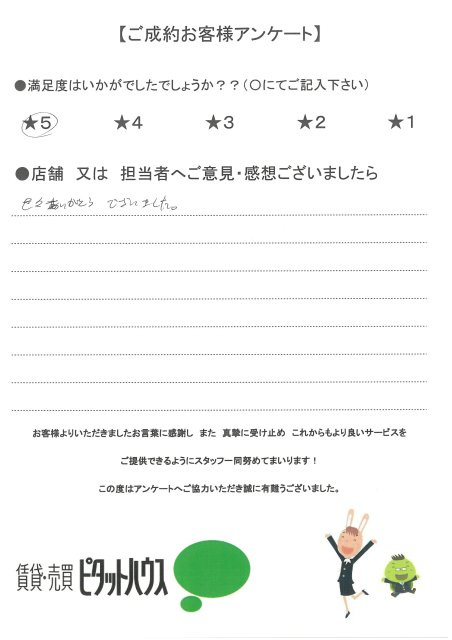 【ご成約お客様アンケート】
●満足度はいかがでしたでしょうか？？（〇にてご記入下さい）
★5 ★4 ★3 ★2 ★1
●店舗 又は 担当者へご意見・感想ございましたら
色々ありがとう ございました。
お客様よりいただきましたお言葉に感謝し また 真摯に受け止め これからもより良いサービスを
ご提供できるようにスタッフ一同努めてまいります！
この度はアンケートへご協力いただき誠に有難うございました。
賃貸・売買 ピタットハウス